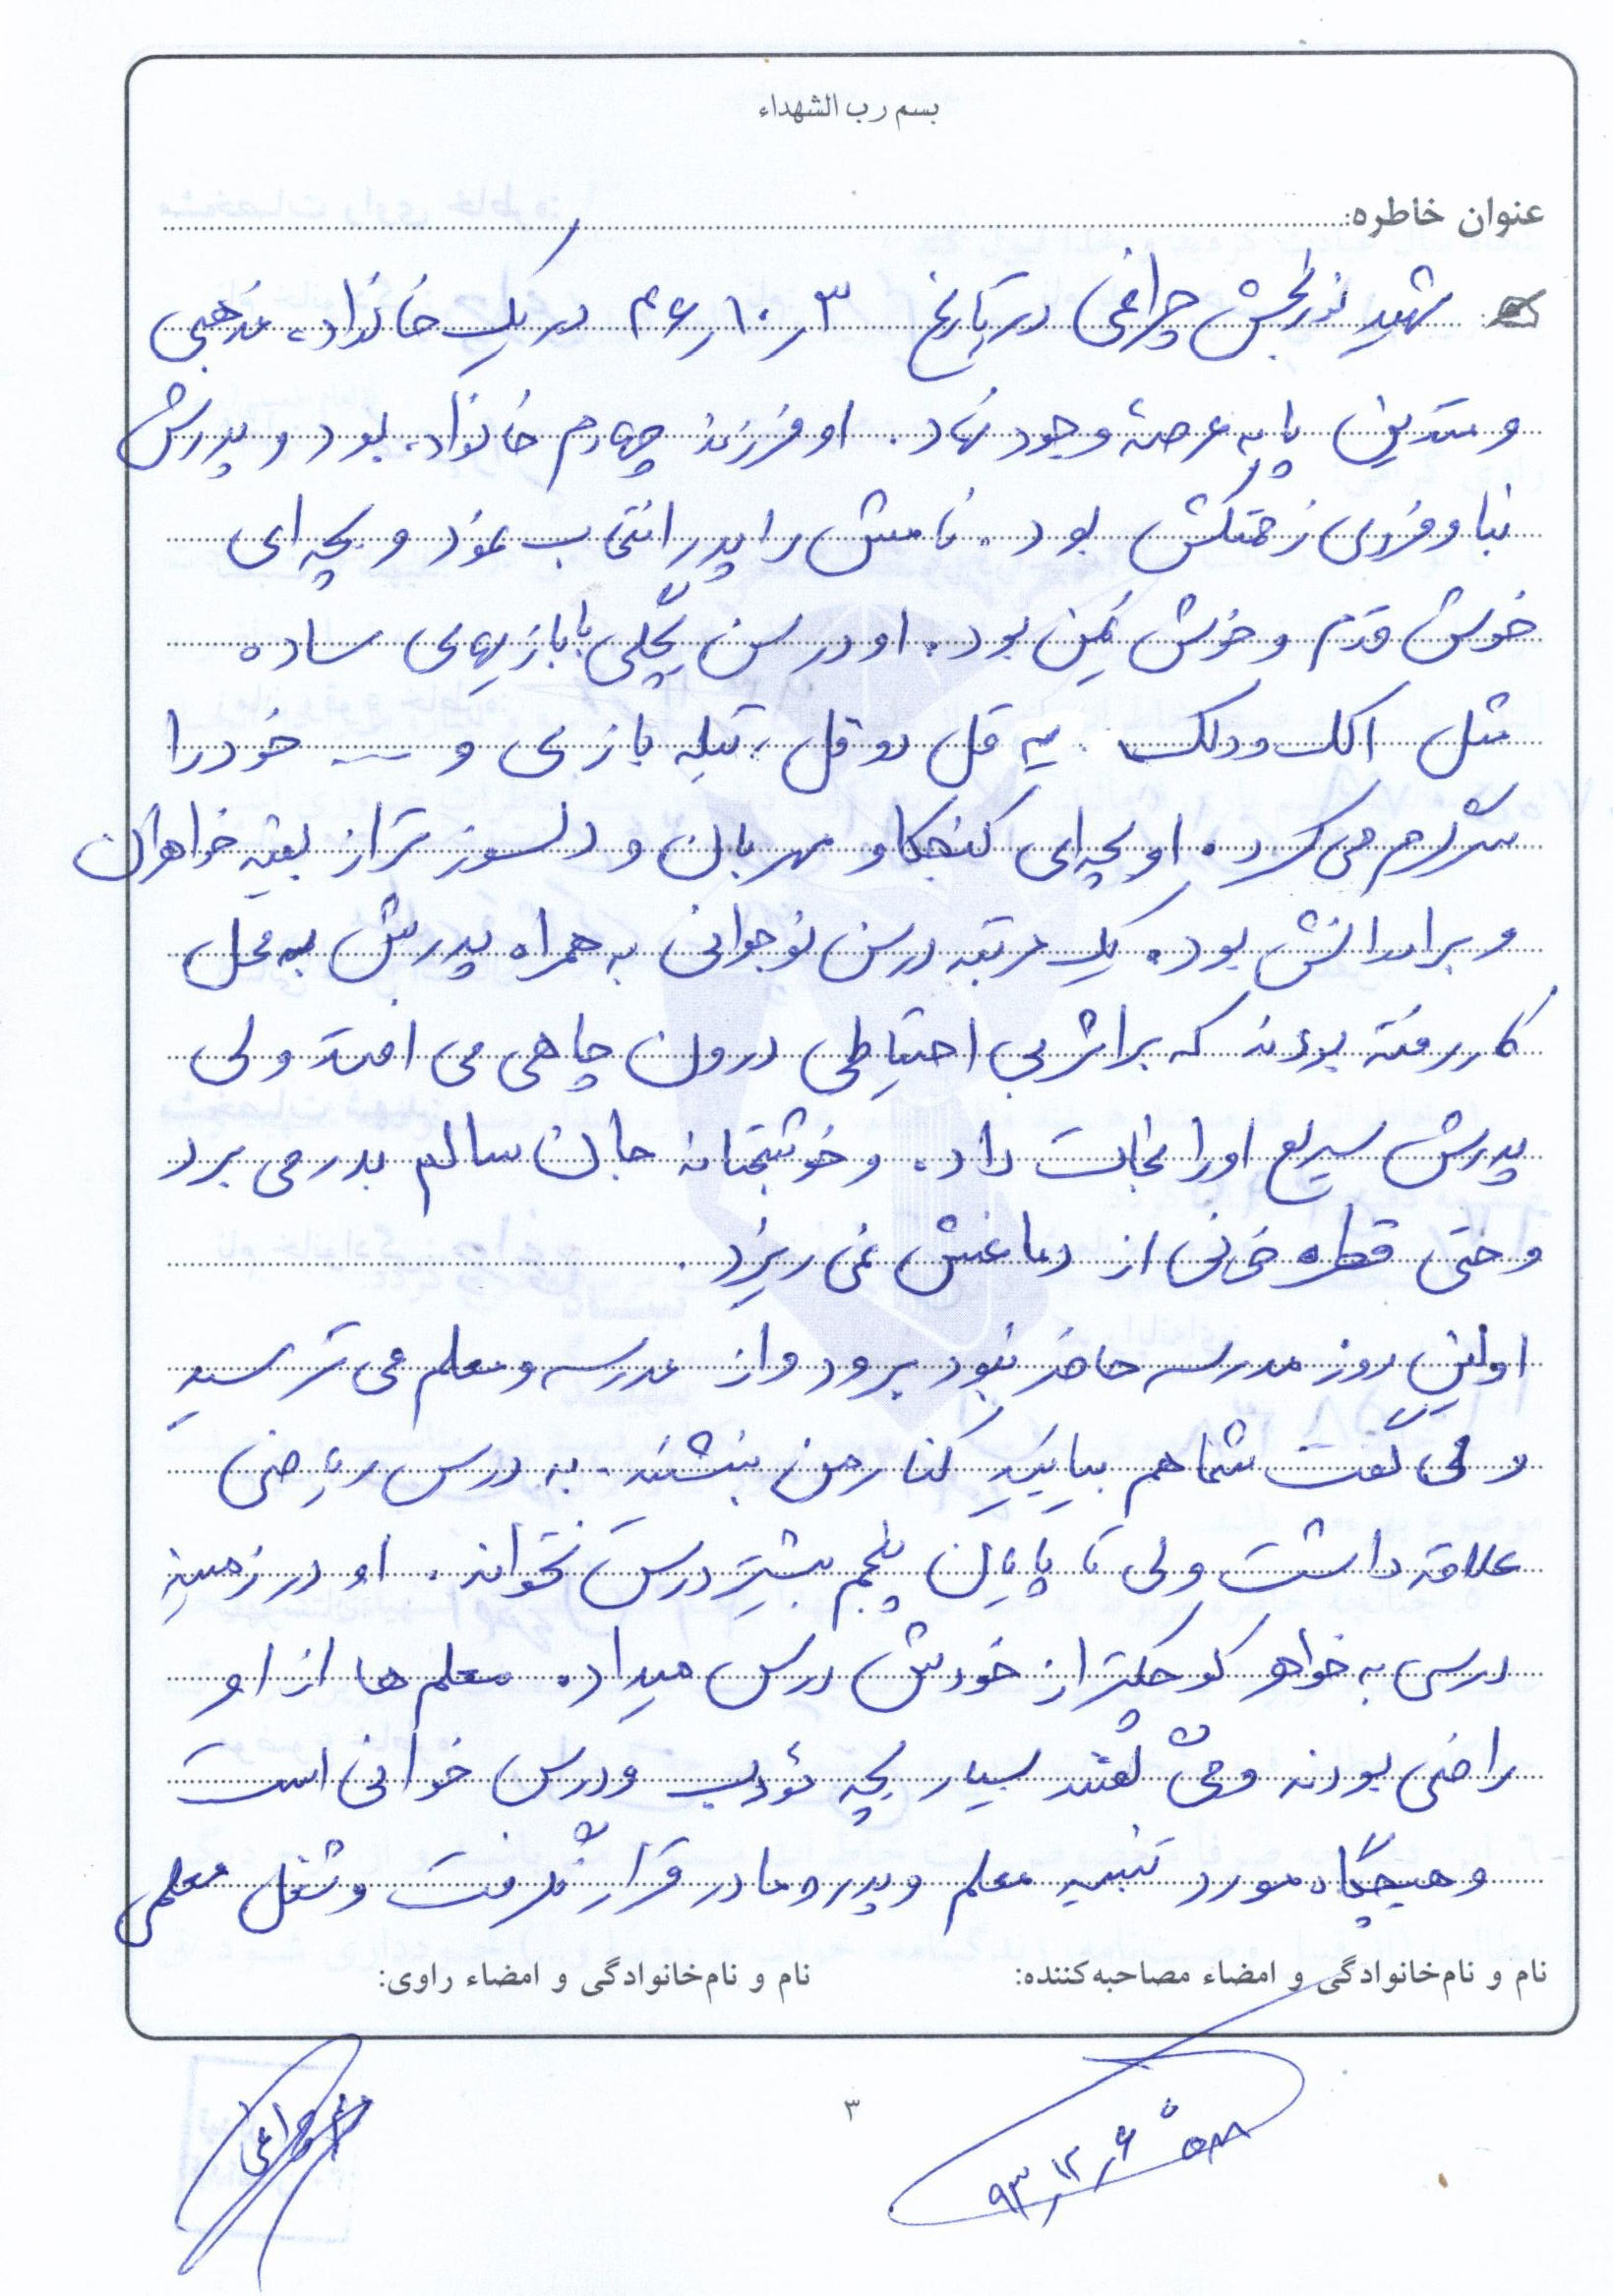 بسم رب الشهداء
عنوان خاطره:
شهید نوربخش چراغی در تاریخ ۳ر۱۰ر۴۶ در یک خانواده مذهبی
و متدین پا به عرصه وجود نهاد. او فرزند چهارم خانواده بود و پدرش
بنا و فردی زحمتکش بود. نامش را پدر انتخاب نمود و بچه ای
خوش قدم و خوش یمن بود. او در سن بچگی با بازیهای ساده
مثل الک و دلک، یه قل دو قل، تیله بازی و ... خود را
سرگرم می کرد. او بچه ای کنجکاو مهربان و دلسوز تر از بقیه خواهران
و برادرانش بود. یک مرتبه در سن نوجوانی به همراه پدرش به محل
کار رفته بودند که بر اثر بی احتیاطی درون چاهی می افتد ولی
پدرش سریع او را نجات داد. و خوشبختانه جان سالم بدر می برد
و حتی قطره خونی از دماغش نمی ریزد.
اولین روز مدرسه حاضر نبود برود و از مدرسه و معلم می ترسید
و می گفت شما هم بیایید کنار من بنشینید. به درس ریاضی
علاقه داشت ولی تا پایان پنجم بیشتر درس نخواند. او در زمینه
درسی به خواهر کوچکتر از خودش درس میداد. معلم ها از او
راضی بودند و می گفتند بسیار بچه مؤدب و درس خوانی است
و هیچگاه مورد تنبیه معلم و پدر و مادر قرار نگرفت و شغل معلمی
نام و نام‌خانوادگی و امضاء مصاحبه‌کننده:
نام و نام‌خانوادگی و امضاء راوی:
۳
۹۳ر۱۲ر۶
چراغی